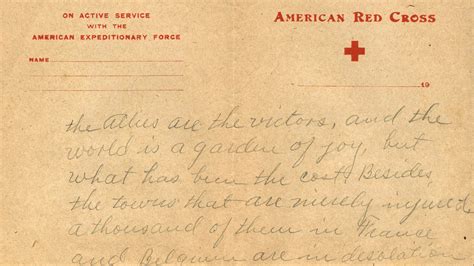 ON ACTIVE SERVICE
WITH THE
AMERICAN EXPEDITIONARY FORCE
NAME
AMERICAN RED CROSS
19
the Allies are the victors, and the
world is a garden of joy, but
what has been the cost? Besides
the towns that are merely injured
a thousand of them in France
and Belgium are in desolation